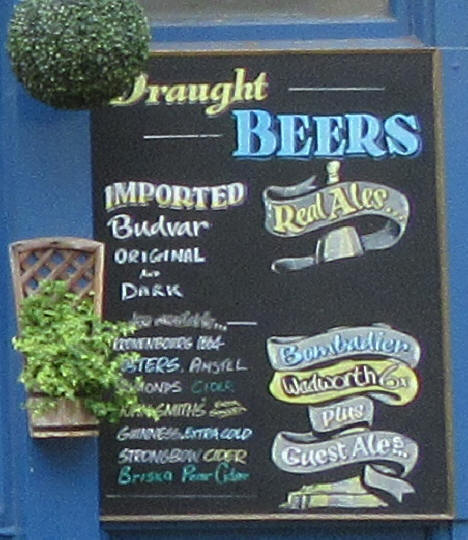 Draught
BEERS
IMPORTED
Budvar
ORIGINAL
AND
DARK
KRONENBOURG 1664
AMSTEL
CIDER
GUINNESS, EXTRA COLD
STRONGBOW CIDER
Briska Pear Cider
Real Ales...
Bombadier
Wadworth 6x
Plus
Guest Ales...